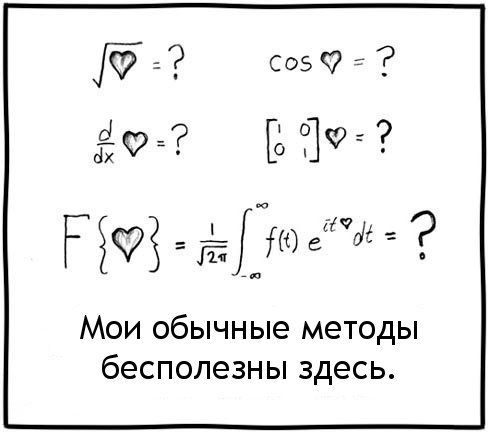 √♥ = ? cos ♥ = ?
d/dx ♥ = ? [1 0 0 1] ♥ = ?
F{♥} = 1/√2π ∫_{-∞}^{∞} f(t) e^{it♥} dt = ?
Мои обычные методы
бесполезны здесь.